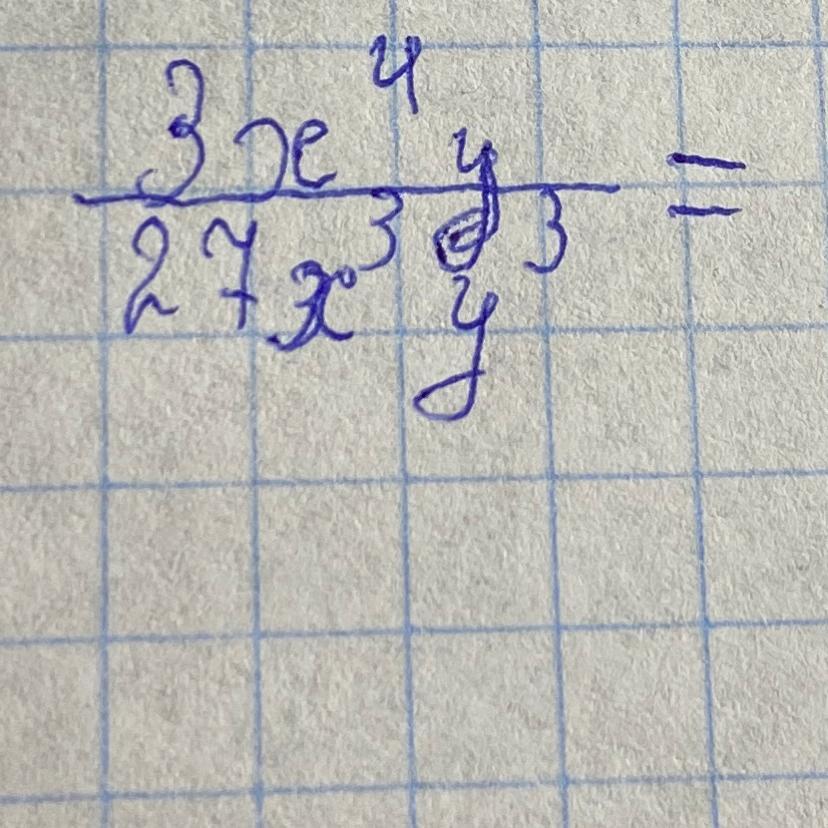 3x⁴y
27x³y³ =